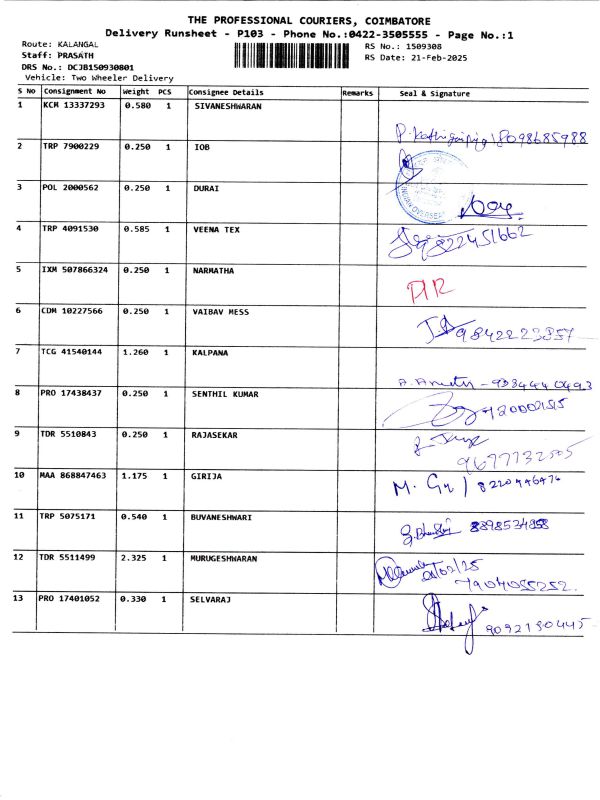 THE PROFESSIONAL COURIERS, COIMBATORE
Delivery Runsheet - P103 - Phone No.:0422-3505555 - Page No.:1
Route: KALANGAL
RS No.: 1509308
Staff: PRASATH
RS Date: 21-Feb-2025
DRS No.: DCJB150930801
Vehicle: Two Wheeler Delivery
S No Consignment No Weight PCS Consignee Details Remarks Seal & Signature
1 KCM 13337293 0.580 1 SIVANESHWARAN
8098685988
2 TRP 7900229 0.250 1 IOB
3 POL 2000562 0.250 1 DURAI
INDIAN OVERSEAS
4 TRP 4091530 0.585 1 VEENA TEX
9822451662
5 IXM 507866324 0.250 1 NARMATHA
6 CDM 10227566 0.250 1 VAIBAV MESS
9842223357
7 TCG 41540144 1.260 1 KALPANA
8 PRO 17438437 0.250 1 SENTHIL KUMAR
9 TDR 5510843 0.250 1 RAJASEKAR
9677732505
10 MAA 868847463 1.175 1 GIRIJA
11 TRP 5075171 0.540 1 BUVANESHWARI
12 TDR 5511499 2.325 1 MURUGESHWARAN
21/02/25
7904055252.
13 PRO 17401052 0.330 1 SELVARAJ
9092190445